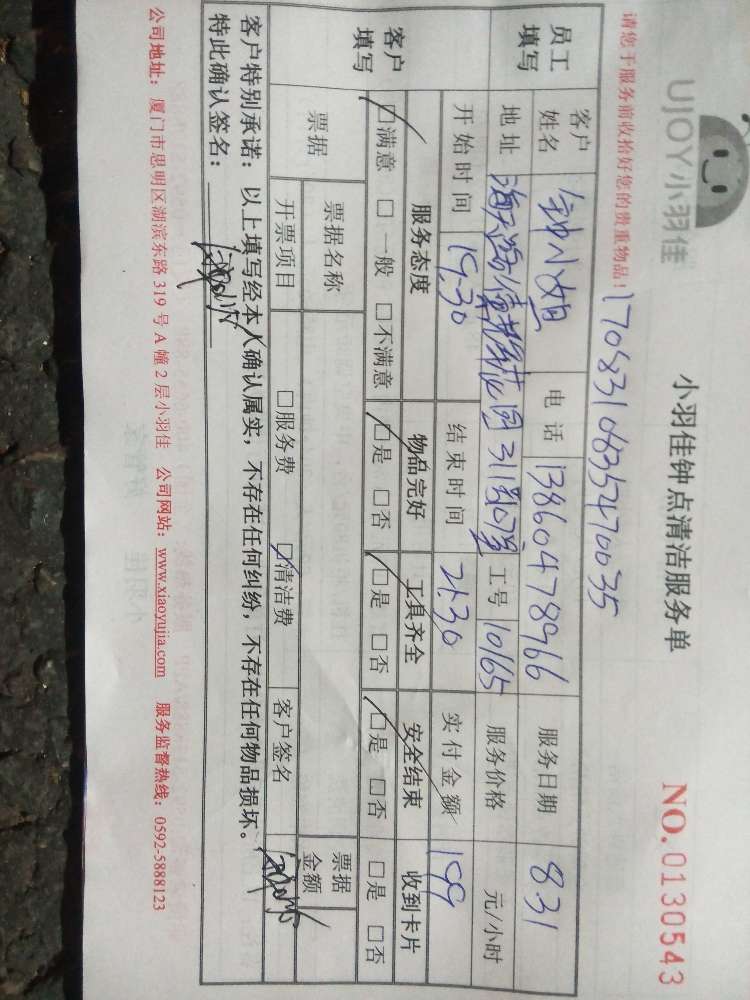 UJOY小羽佳
小羽佳钟点清洁服务单
NO.0130543
请您于服务前收拾好您的贵重物品!
1708310835470035
员工填写
客户姓名 钟小姐 电话 13860478966 服务日期 8.31
地址 工号 10165 服务价格 元/小时
开始时间 19.30 结束时间 21.30 实付金额 199
客户填写
服务态度 物品完好 工具齐全 安全结束 收到卡片
□满意 □一般 □不满意 □是 □否 □是 □否 □是 □否 □是 □否
票据 票据名称 票据金额
开票项目 □服务费 □清洁费 客户签名
客户特别承诺:以上填写经本人确认属实,不存在任何纠纷,不存在任何物品损坏。
特此确认签名:
公司地址:厦门市思明区湖滨东路 319 号 A 幢 2 层小羽佳 公司网站:www.xiaoyujia.com 服务监督热线:0592-5888123